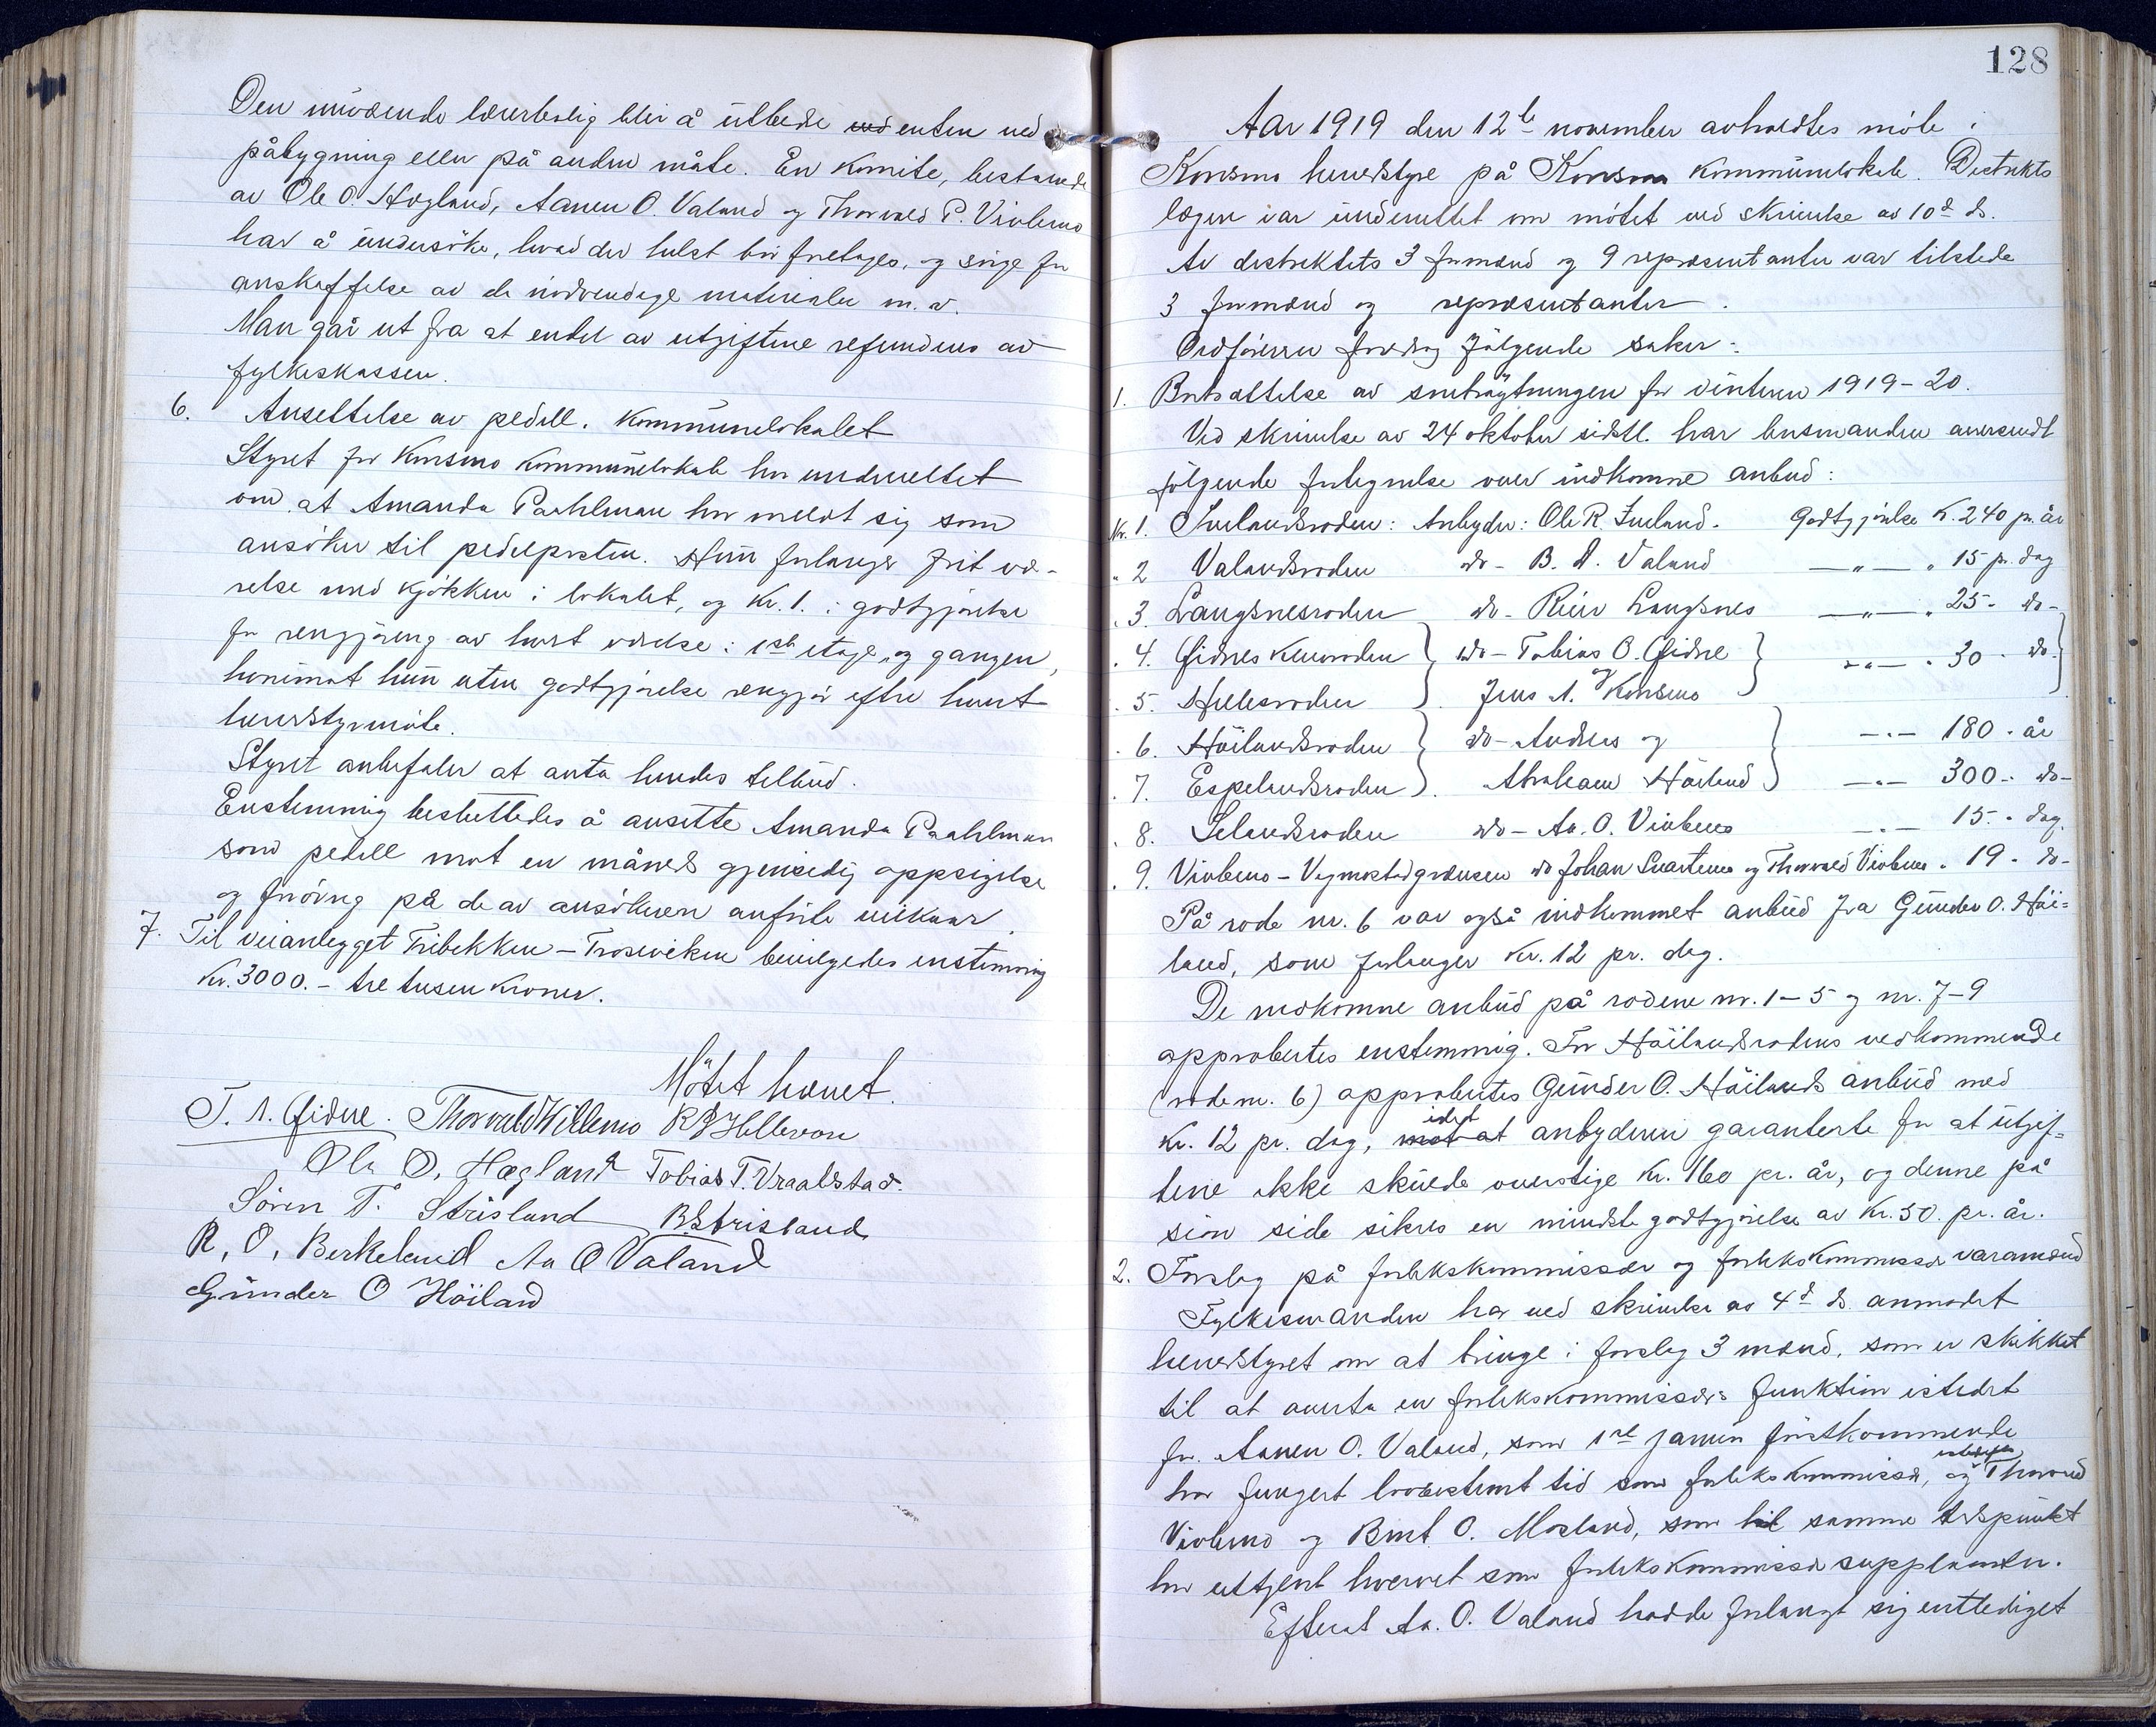 Den nuværende lærerbolig blir å utbedre ved enten ved
påbygning eller på anden måte. En komite, bestaaende
av Ole O. Høgland, Aanen O. Valand og Thorvald P. Vivlemo
har å undersöke, hvad der helst bör foretages, og sörge for
anskaffelse av de nödvendige materialer m. v.
Man går ut fra at endel av utgiftene refunderes av
fylkeskassen.
6. Ansettelse av pedell. Kommunelokalet
Styret for Konsmo kommunelokale har underrettet
om at Amanda Paahlman har meldt sig som
ansöker til pedelposten. Hun forlanger frit væ-
relse med kjökken i lokalet, og Kr. 1. i godtgjörelse
for rengjöring av hvert værelse i 1ste etage og gangen,
hvorimot hun uten godtgjörelse rengjör efter hvert
herredstyrmöte.
Styret anbefaler at anta hendes tilbud.
Enstemmig besluttedes å ansette Amanda Paahlman
som pedell mot en måneds gjensidig oppsigelse
og forövrig på de av ansökeren anförte vilkaar.
7. Til veianlegget Tribekken - Trosviken bevilgedes enstemmig
Kr. 3000. - tre tusen kroner.
Mötet hævet.
T. A. Eidne. Thorvald Willemo R J Hellevan
Ole O. Hægland Tobias T. Vraalstad.
Sören T. Strisland B. Strisland
R. O. Berkeland Aa O Valand
Gunder O Höiland
128
Aar 1919 den 12te november avholdtes möte i
Konsmo herredstyre på Konsmo kommunelokale. Distrikts
lægen var underrettet om mötet ved skrivelse av 10de ds.
Av distriktets 3 formænd og 9 repræsentanter var tilstede
3 formænd og repræsentanter.
Ordföreren foredrog fölgende saker:
1. Bortsættelse av snebröytningen for vinteren 1919-20.
Ved skrivelse av 24 oktober sidstl. har lensmanden oversendt
fölgende fortegnelse over indkomne anbud:
Nr. 1. Ivelandsroden: Anbyder: Ole R. Iveland. Godtgjörelse K. 240 pr. år
" 2 Valandsroden do - B. A. Valand —"— " 15 pr. dag
" 3. Langsnesroden do - Reier Langsnes —"— " 25 - do -
" 4. Eidneskleivroden } do - Tobias O. Eidne } —"— " 30 - do -
" 5. Hellesroden } og Jens A. Konsmo }
" 6. Höilandsroden } do - Anders og } —"— 180 - år
" 7. Espelandsroden } Abraham Höiland } —"— 300 - do -
" 8. Selandsroden do - Aa. O. Vivlemo —"— 15 - dag.
" 9. Vivlemo - Vegmostadgrænsen do Johan Svartemo og Thorvald Vivlemo " 19 - do -
På rode nr. 6 var også indkommet anbud fra Gunder O. Höi-
land, som forlanger Kr. 12 pr. dag.
De indkomne anbud på rodene nr. 1-5 og nr. 7-9
approbertes enstemmig. For Höilandsrodens vedkommende
(rode nr. 6) approbertes Gunder O. Höilands anbud med
Kr. 12 pr. dag, mot at anbyderen garanterte for at utgif-
tene ikke skulde overstige Kr. 160 pr. år, og denne på
sin side sikres en mindste godtgjörelse av Kr. 50. pr. år.
2. Forslag på forlikskommissær og forlikskommissær varamænd
Fylkesmanden har ved skrivelse av 4de ds. anmodet
herredstyret om at bringe i forslag 3 mænd, som er skikket
til at overta en forlikskommissærs funktion istedet
for Aanen O. Valand, som 1ste januar förstkommende
har fungert lovbestemt tid som forlikskommissær, og Thorvald
Vivlemo og Bernt O. Mosland, som til samme tidspunkt
har uttjent hvervet som forlikskommissær supplianter.
Efterat Aa. O. Valand hadde forlangt sig entlediget